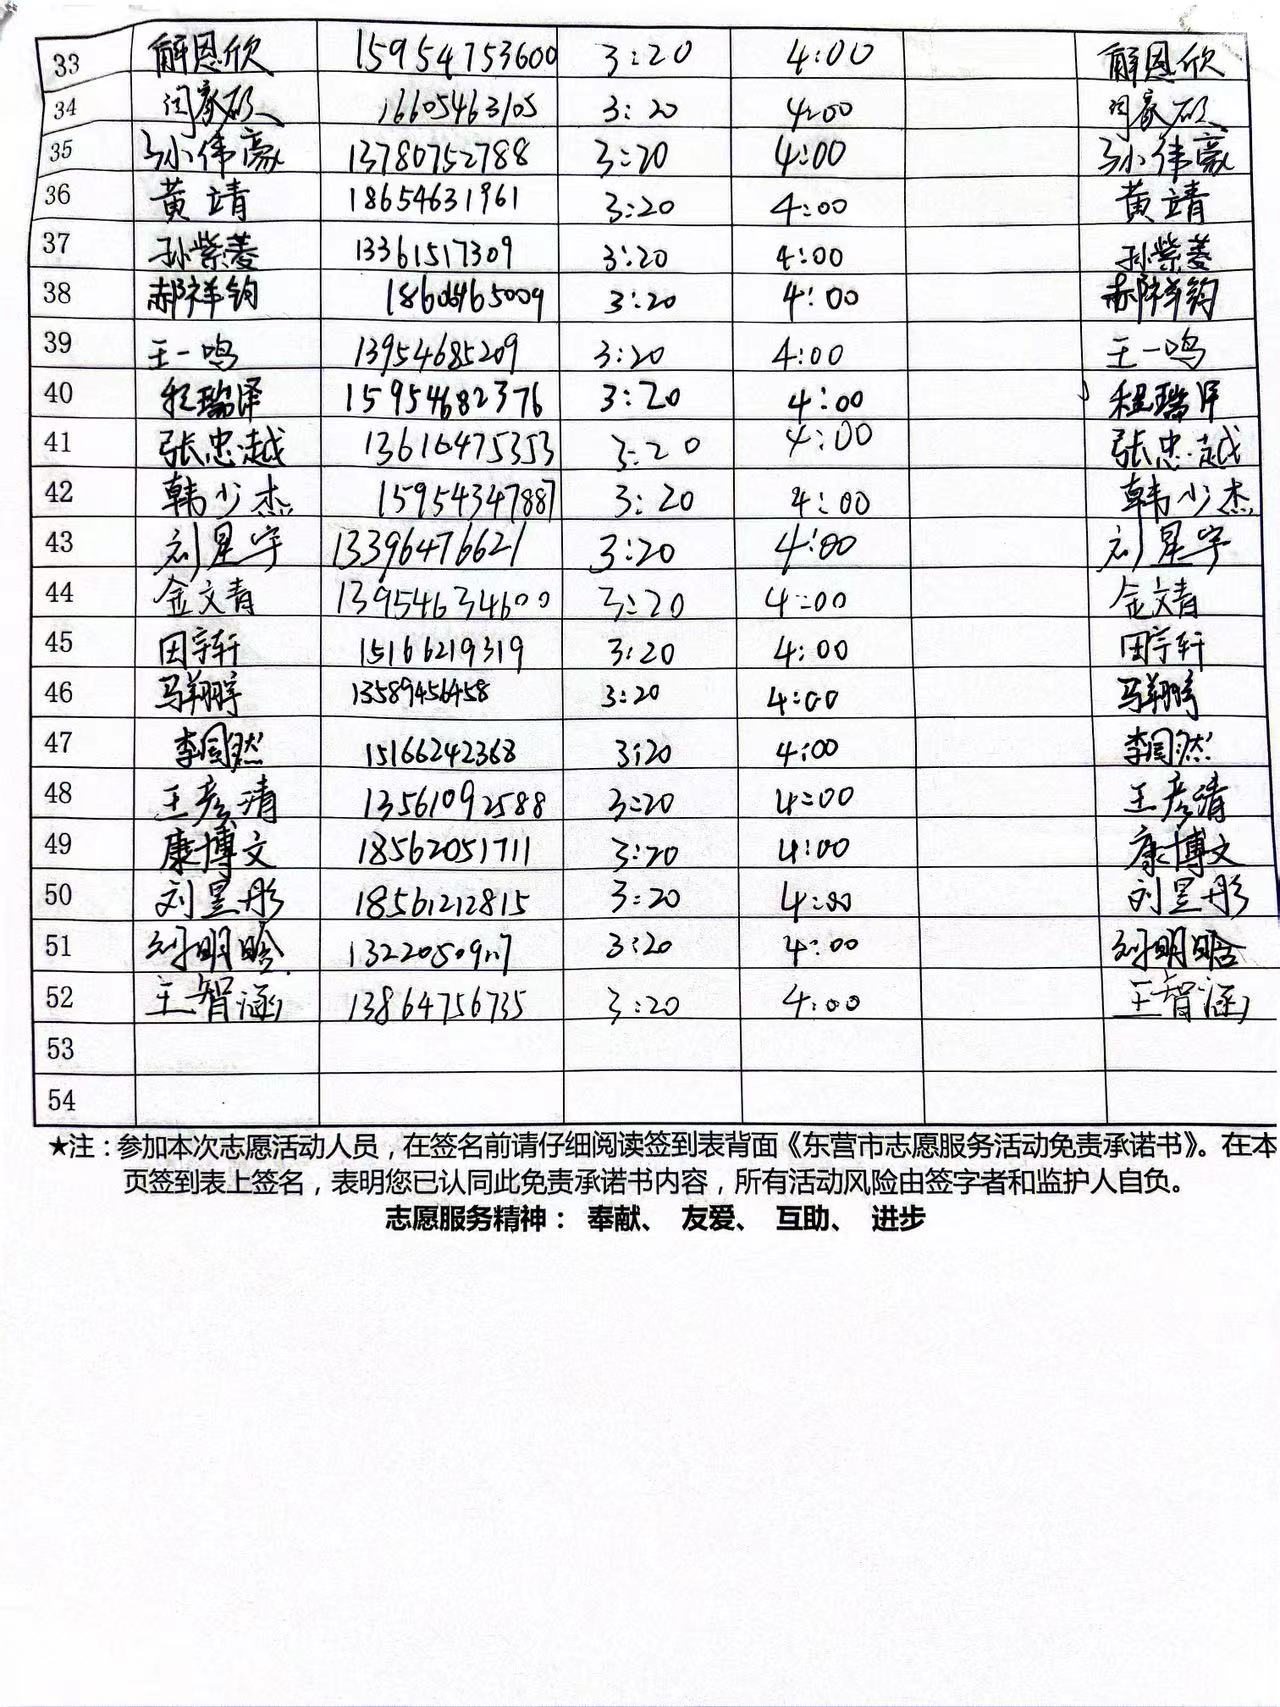 33 解恩欣 15954753600 3:20 4:00 解恩欣
34 闫家硕 16605463105 3:20 4:00 闫家硕
35 孙伟豪 13780752788 3:20 4:00 孙伟豪
36 黄靖 18654631961 3:20 4:00 黄靖
37 孙紫菱 13361517309 3:20 4:00 孙紫菱
38 郝祥钧 3:20 4:00 郝祥钧
39 王一鸣 13954685209 3:20 4:00 王一鸣
40 程瑞泽 15954682376 3:20 4:00 程瑞泽
41 张忠越 13616475353 3:20 4:00 张忠越
42 韩少杰 15954347887 3:20 4:00 韩少杰
43 刘星宇 13396476621 3:20 4:00 刘星宇
44 金文青 13954634600 3:20 4:00 金文青
45 田宇轩 15166219319 3:20 4:00 田宇轩
46 马翔宇 13589456458 3:20 4:00 马翔宇
47 李国然 15166242368 3:20 4:00 李国然
48 王彦清 13561092588 3:20 4:00 王彦清
49 康博文 18562051711 3:20 4:00 康博文
50 刘昱彤 18561212815 3:20 4:00 刘昱彤
51 刘明晗 3:20 4:00 刘明晗
52 王智涵 13864756735 3:20 4:00 王智涵
53
54
★注：参加本次志愿活动人员，在签名前请仔细阅读签到表背面《东营市志愿服务活动免责承诺书》。在本
页签到表上签名，表明您已认同此免责承诺书内容，所有活动风险由签字者和监护人自负。
志愿服务精神： 奉献、 友爱、 互助、 进步